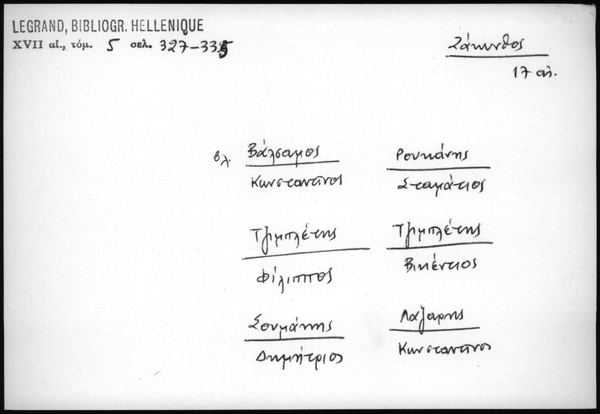 LEGRAND, BIBLIOGR. HELLENIQUE
XVII αἰ., τόμ. 5 σελ. 327-335
Ζάκυνθος
17 αἰ.
βλ Βάλσαμος
Κωνσταντῖνος
Ρουκάνης
Σταμάτιος
Τζιμπλέτης
Φίλιππος
Τζιμπλέτης
Βικέντιος
Σουμάκης
Δημήτριος
Λαζαρης
Κωνσταντῖνος